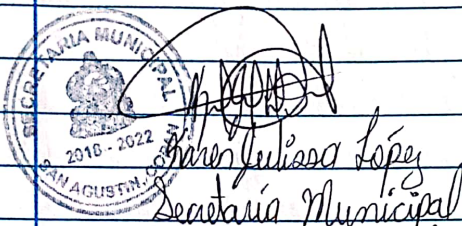 SECRETARIA MUNICIPAL
2018 - 2022
SAN AGUSTIN, COPAN
Karen Julissa López
Secretaria Municipal